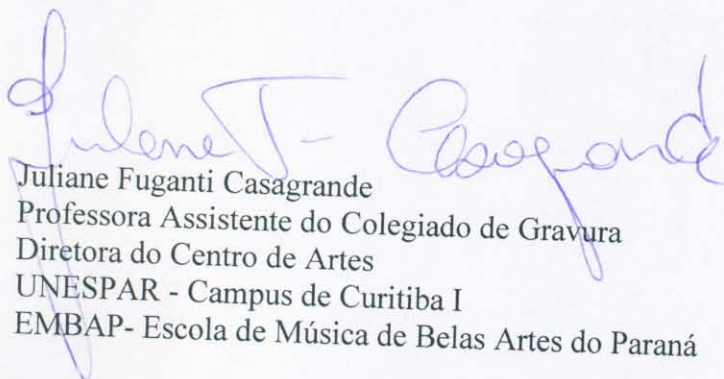 Juliane F- Casagrande
Juliane Fuganti Casagrande
Professora Assistente do Colegiado de Gravura
Diretora do Centro de Artes
UNESPAR - Campus de Curitiba I
EMBAP- Escola de Música de Belas Artes do Paraná